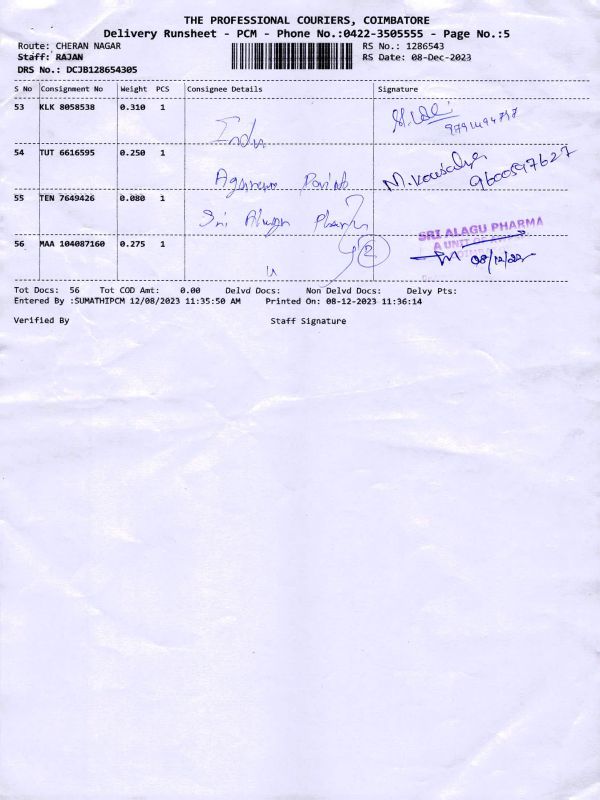 THE PROFESSIONAL COURIERS, COIMBATORE
Delivery Runsheet - PCM - Phone No.:0422-3505555 - Page No.:5
Route: CHERAN NAGAR RS No.: 1286543
Staff: RAJAN RS Date: 08-Dec-2023
DRS No.: DCJB128654305
S No Consignment No Weight PCS Consignee Details Signature
53 KLK 8058538 0.310 1
Indu
54 TUT 6616595 0.250 1
M. Kousalya 9600597627
55 TEN 7649426 0.080 1
Sri
SRI ALAGU PHARMA
A UNIT OF
56 MAA 104087160 0.275 1
2
Tot Docs: 56 Tot COD Amt: 0.00 Delvd Docs: Non Delvd Docs: Delvy Pts:
Entered By :SUMATHIPCM 12/08/2023 11:35:50 AM Printed On: 08-12-2023 11:36:14
Verified By Staff Signature